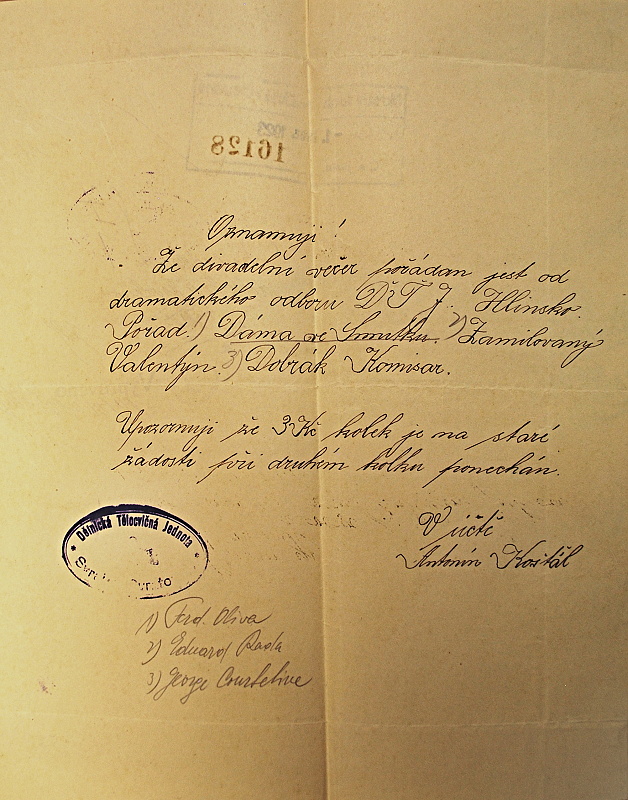 16128
Oznamuji!
Že divadelní večer pořádán jest od
dramatického odboru D.T.J. Hlinsko.
Pořad. 1) Dáma ve Smutku. 2) Zamilovaný
Valentýn. 3) Dobrák Komisar.
Upozornuji že 3 Kč kolek je na staré
žádosti při druhém kolku ponechán.
V úctě
Antonín Košťál
Dělnická Tělocvičná Jednota
1) Ferd. Oliva
2) Eduard Rada
3) George Courteline